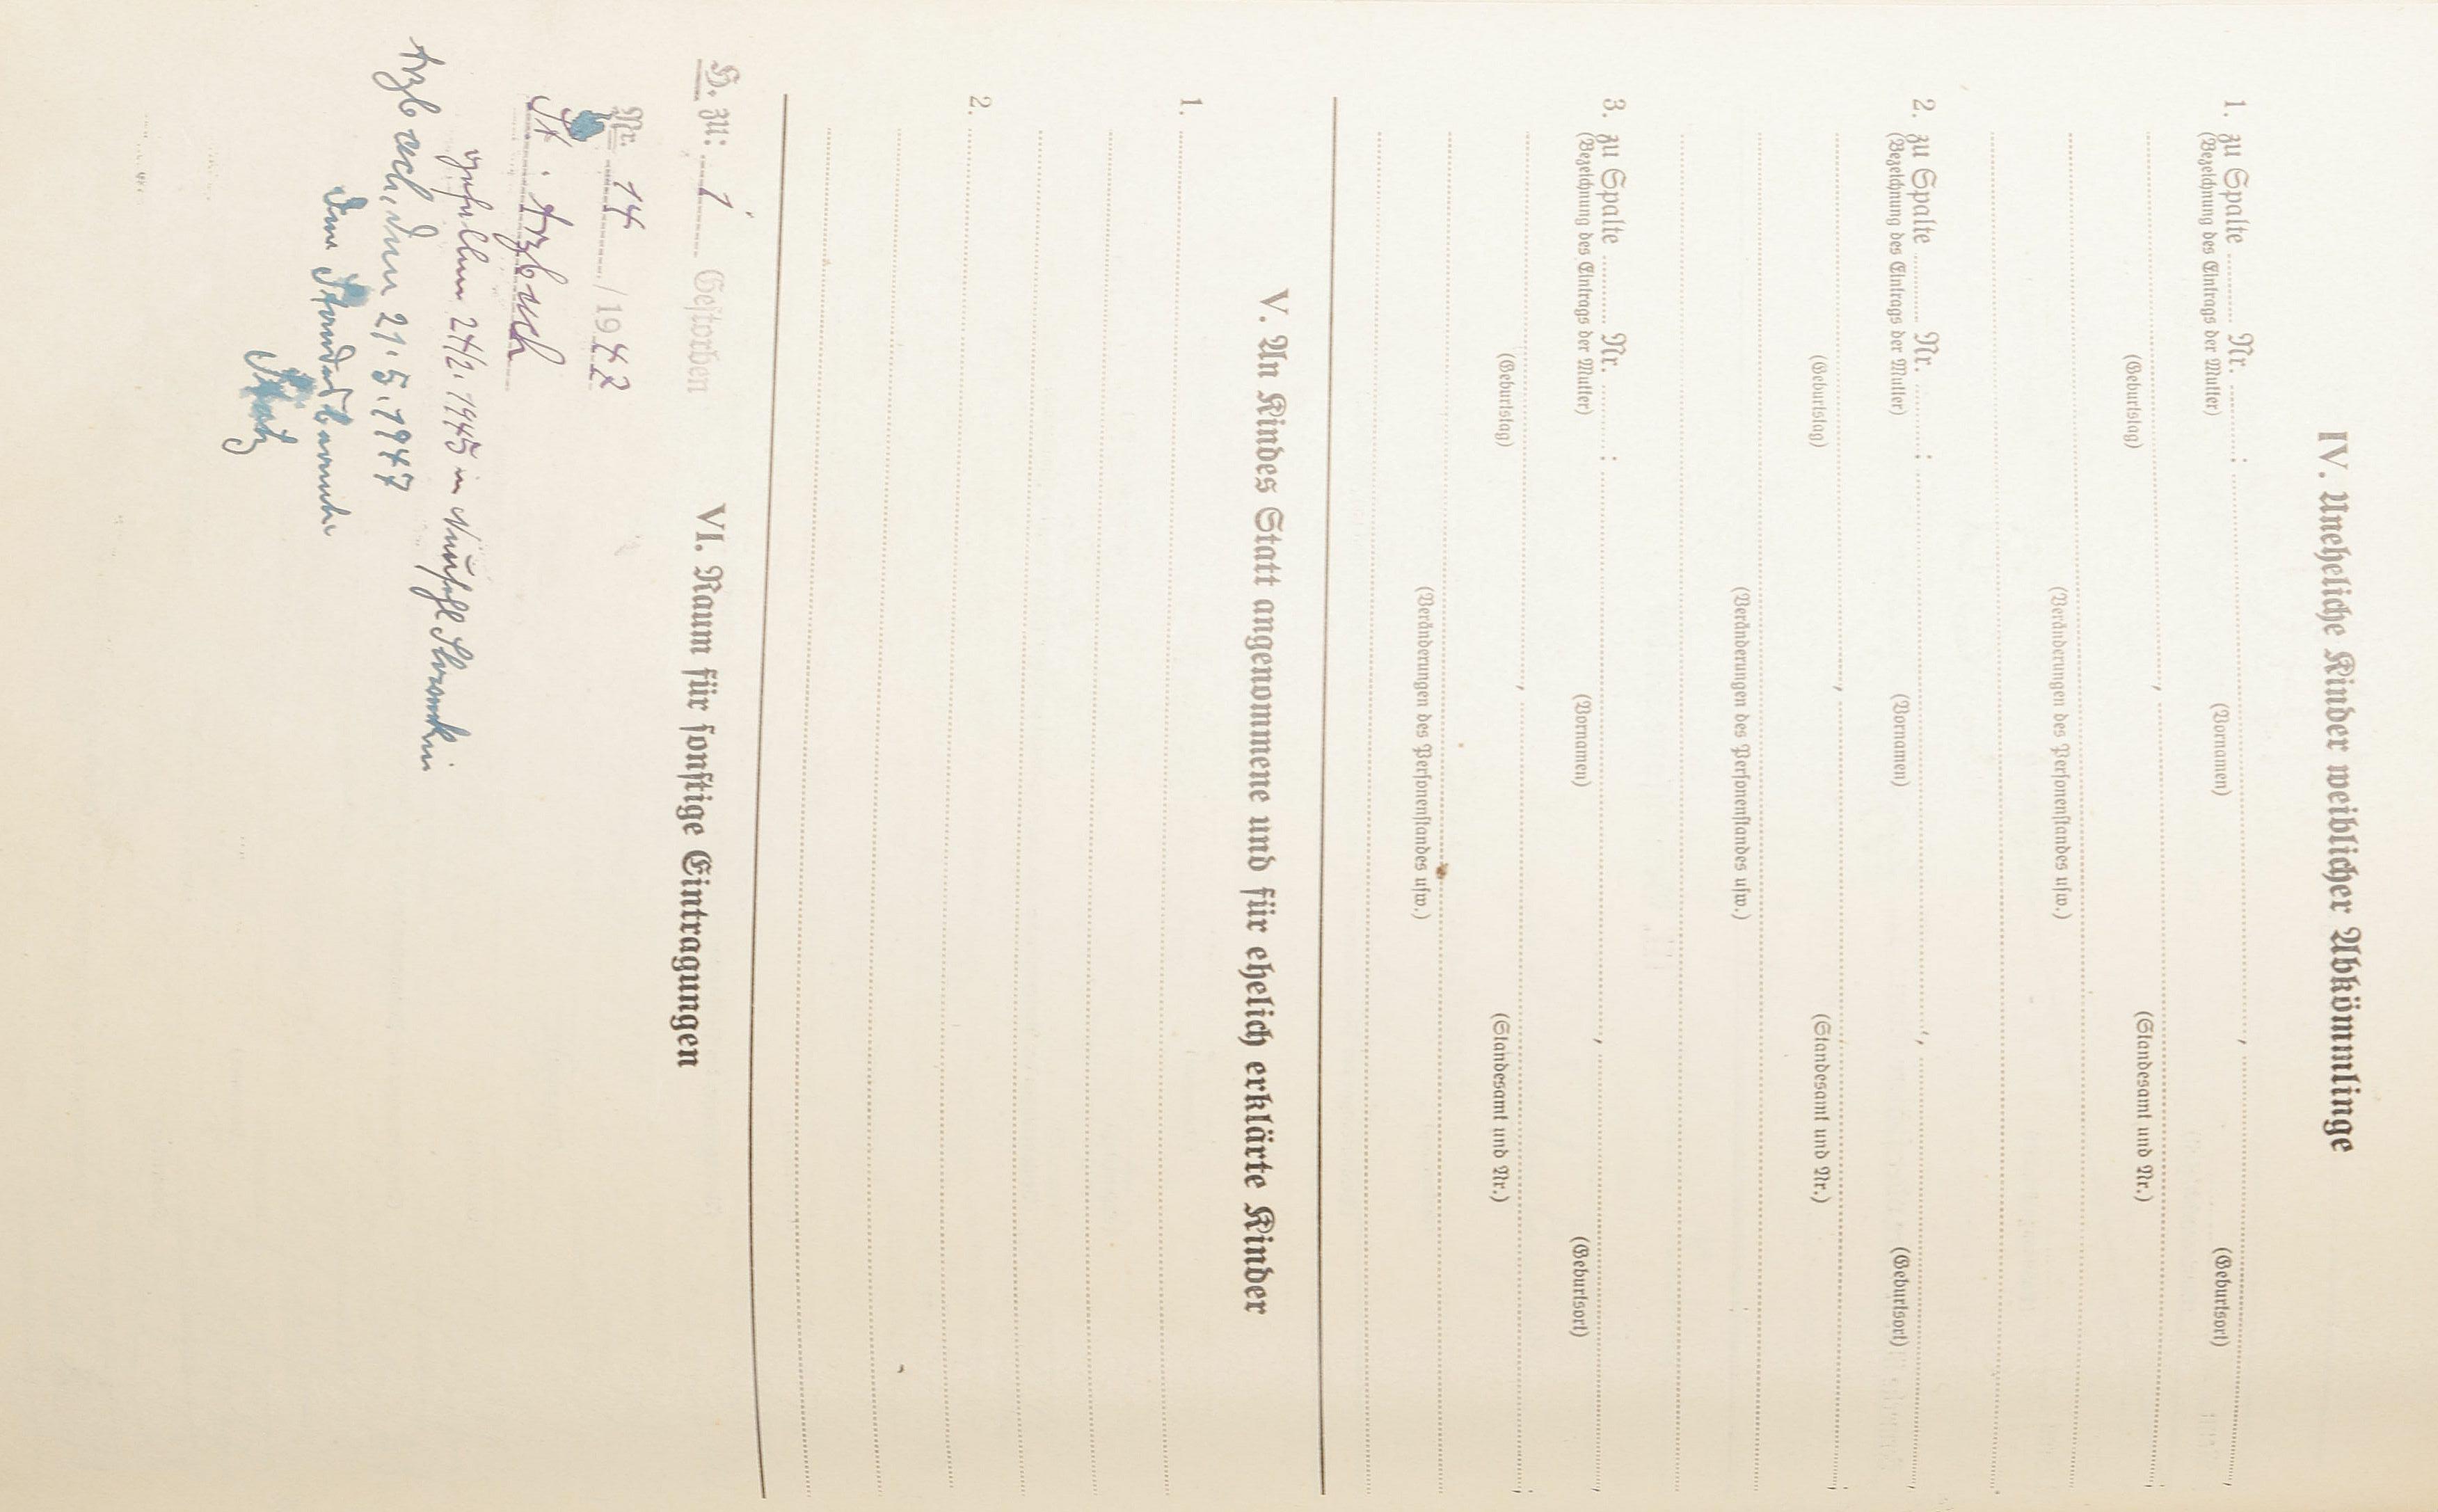 IV. Uneheliche Kinder weiblicher Abkömmlinge
1. zu Spalte ........ Nr. ........:
(Bezeichnung des Eintrags der Mutter) (Vornamen) (Geburtsort)
(Geburtstag) (Standesamt und Nr.)
(Veränderungen des Personenstandes usw.)
2. zu Spalte ........ Nr. ........:
(Bezeichnung des Eintrags der Mutter) (Vornamen) (Geburtsort)
(Geburtstag) (Standesamt und Nr.)
(Veränderungen des Personenstandes usw.)
3. zu Spalte ........ Nr. ........:
(Bezeichnung des Eintrags der Mutter) (Vornamen) (Geburtsort)
(Geburtstag) (Standesamt und Nr.)
(Veränderungen des Personenstandes usw.)
V. An Kindes Statt angenommene und für ehelich erklärte Kinder
1.
2.
VI. Raum für sonstige Eintragungen
H. zu: 1 Gestorben
Nr. 14 / 1942
St. Arzbach
gefallen 24/2. 1945 in
Arzbach, den 21.5.1947
Der Standesbeamte